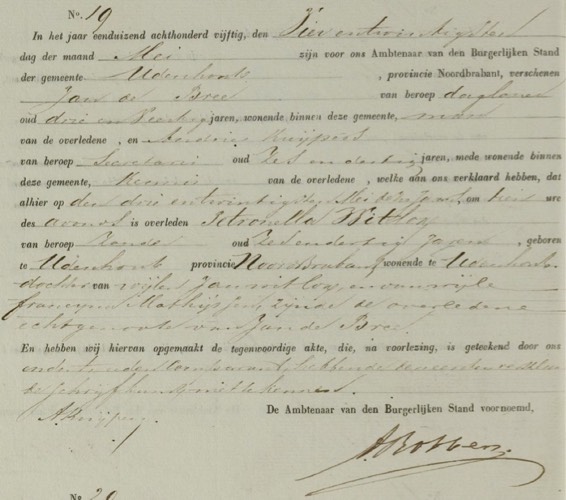 No. 19
In het jaar eenduizend achthonderd vijftig, den Vier en twintigsten
dag der maand Mei zijn voor ons Ambtenaar van den Burgerlijken Stand
der gemeente Udenhout, provincie Noordbrabant, verschenen
Jan de Bree van beroep dagloner
oud drie en Veertig jaren, wonende binnen deze gemeente, man
van de overledene, en Andries Kuijpers
van beroep Secretaris oud Zes en dertig jaren, mede wonende binnen
deze gemeente, Kennis van de overledene, welke aan ons verklaard hebben, dat
alhier op den drie en twintigsten Mei dezes jaars, om tien ure
des avonds is overleden Petronella Witlox
van beroep Zonder oud Zes en dertig Jaren, geboren
te Udenhout provincie Noord Braband wonende te Udenhout
dochter van wijlen Jan witlox, en van wijle
francyn Mathijssen, zijnde de overledene
echtgenoote van Jan de Bree.
En hebben wij hiervan opgemaakt de tegenwoordige akte, die, na voorlezing, is geteekend door ons
en den tweeden Comparant, hebbende den eersten verklaard
te kennen.
De Ambtenaar van den Burgerlijken Stand voornoemd,
A Kuijpers
No. 20